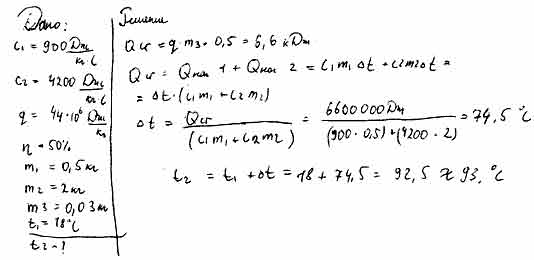 Дано:
c₁ = 900 Дж/кг·С
c₂ = 4200 Дж/кг·С
q = 44·10⁶ Дж/кг
η = 50%
m₁ = 0,5 кг
m₂ = 2 кг
m3 = 0,03 кг
t₁ = 18°С
t₂ - ?
Решение
Qсг = q·m₃·0,5 = 6,6 кДж
Qсг = Qнаг 1 + Qнаг 2 = c₁m₁Δt + c₂m₂Δt =
= Δt·(c₁m₁ + c₂m₂)
Δt = Qсг/(c₁m₁ + c₂m₂) = 6600000Дж/(900·0,5)+(4200·2) = 74,5 °С
t₂ = t₁ + Δt = 18 + 74,5 = 92,5 ≈ 93,°С